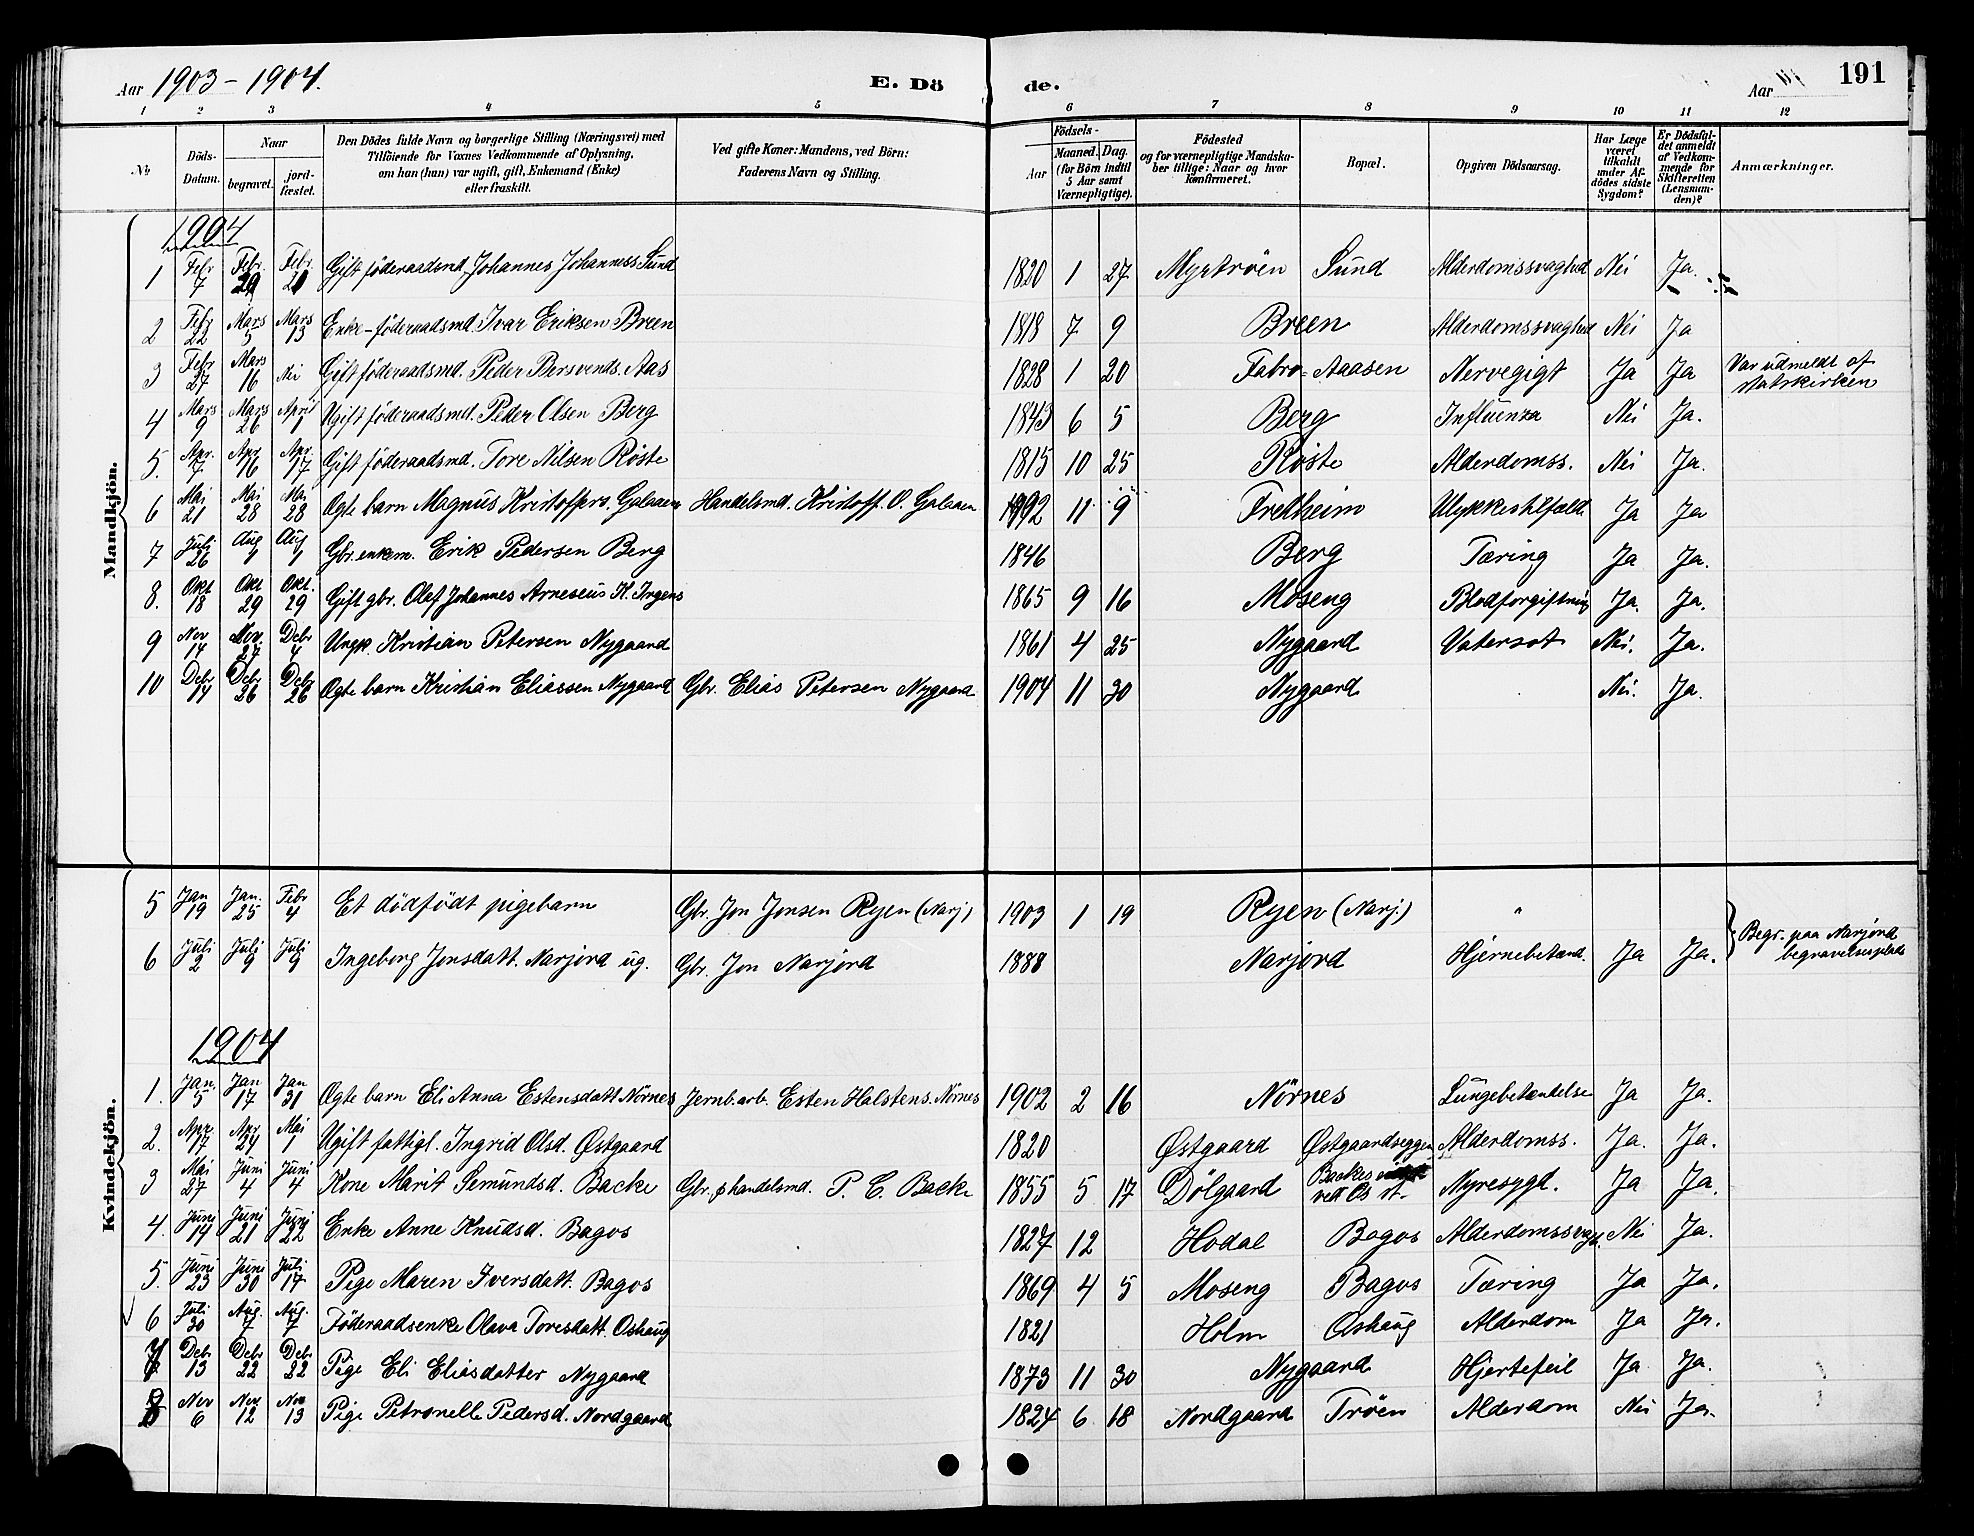 Aar 1903-1904.
E. Dö
de.
Aar
191
1 2 3 4 5 6 7 8 9 10 11 12
Nr
Döds-Datum.
Naar
begravet.
jord-fæstet.
Den Dödes fulde Navn og borgerlige Stilling (Næringsvei) med
Tilföiende for Voxnes Vedkommende af Oplysning,
om han (hun) var ugift, gift, Enkemand (Enke)
eller fraskilt.
Ved gifte Koner: Mandens, ved Börn:
Faderens Navn og Stilling.
Födsels-
Aar
Maaned. Dag.
(for Börn indtil
5 Aar samt
Værnepligtige).
Födested
og for værnepligtige Mandska-
ber tillige: Naar og hvor
konfirmeret.
Bopæl.
Opgiven Dödsaarsag.
Har Læge
været
tilkaldt
under Af-
dödes sidste
Sygdom?
Er Dödsfal-
det anmeldt
af Vedkom-
mende for
Skifteretten
(Lensman-
den)?
Anmærkninger.
Mandkjön.
1904
1 Febr 7 Febr. 20 Febr. 21 Gift föderaadsmd. Johannes Johanness. Sund 1820 1 27 Myströen Sund Alderdomssvaghed Nei Ja.
2 Febr 22 Mars 5 Mars 13 Enke-föderaadsmd. Ivar Eriksen Breen 1818 7 9 Breen Alderdomssvaghed Nei Ja
3 Febr 27 Mars 16 Nei Gift föderaadsmd. Peder Bersvends. Aas 1828 1 20 Fabro-Aaasen Nervegigt Ja Ja Var udmeldt af
statskirken
4 Mars 9 Mars 26 April 1 Ugift föderaadsmd. Peder Olsen Berg 1843 6 5 Berg Influenza Nei Ja.
5. Apr. 7 Apr 16 Apr. 17 Gift föderaadsmd. Tore Nilsen Röste 1815 10 25 Röste Alderdomss. Nei Ja.
6 Mai 21 Mai 28 Mai 28 Ægte barn Magnus Kristoffers. Galaaen Handelsmd. Kristoff. O. Galaaen 1992 11 9 Fretheim Ulykkestilfælde Ja Ja
7 Juli 26 Aug 1 Aug 1 Gbr. enkem. Erik Pedersen Berg 1846 Berg Tæring Ja Ja.
8. Okt 18 Okt 29 Okt. 29 Gift gbr. Olaf Johannes Arneseus H. Ingens 1865 9 16 Moseng Blodforgiftning Ja. Ja.
9 Nov 14 Nov. 27 Debr 4 Ungk. Kristian Petersen Nygaard 1861 4 25 Nygaard Vatersot Nei. Ja.
10 Debr 14 Debr 26 Debr 26 Ægte barn Kristian Eliassen Nygaard Gbr. Elias Petersen Nygaard 1904 11 30 Nygaard Nei. Ja.
Kvindekjön.
5 Jan 19 Jan. 25 Febr 4 Et dödfödt pigebarn Gbr. Jon Jonsen Ryen (Narj) 1903 1 19 Ryen (Narj.) "
6 Juli 2 Juli 9 Juli 9 Ingeborg Jonsdatt. Narjord ug. Gbr. Jon Narjord 1888 Narjord Hjernebetænd. Ja Ja.
Begr. paa Narjord
begravelsesplads
1904
1. Jan. 5 Jan 17 Jan 31 Ægte barn Eli Anna Estensdatt Nörnes Jernb.arb. Esten Halstens. Nörnes 1902 2 16 Nörnes Lungebetændelse Ja Ja.
2. Apr. 17 Apr 24 Mai 1 Ugift fattigl. Ingrid Olsd. Østgaard 1820 Østgaard Østgaardseggen Alderdomss. Ja. Ja.
3 Mai 27 Juni 4 Juni 4 Kone Marit Semundsd. Backe Gbr. & handelsmd. P. C. Backe 1855 5 17 Dölgaard Backes ved Os st. Nyresygd. Ja Ja.
4. Juni 14 Juni 21 Juni 22 Enke Anne Knudsd. Bagos 1827 12 Hodal Bagos Alderdomssvagh. Nei Ja.
5. Juni 23 Juni 30 Juli 17 Pige Maren Iversdatt. Bagos 1869 4 5 Moseng Bagos Tæring Ja Ja.
6 Juli 30 Aug. 7 Aug. 7 Föderaadsenke Olava Toresdatt. Oshaug 1821 Holm Oshaug Alderdom Ja Ja.
7 Debr 13 Debr 22 Debr 22 Pige Eli Eliasdatter Nygaard 1873 11 30 Nygaard Hjertefeil Ja Ja.
8 Nov 6 Nov 12 Nov 13 Pige Petronelle Pedersd. Nordgaard 1824 6 18 Nordgaard Tröen Alderdom Nei Ja.